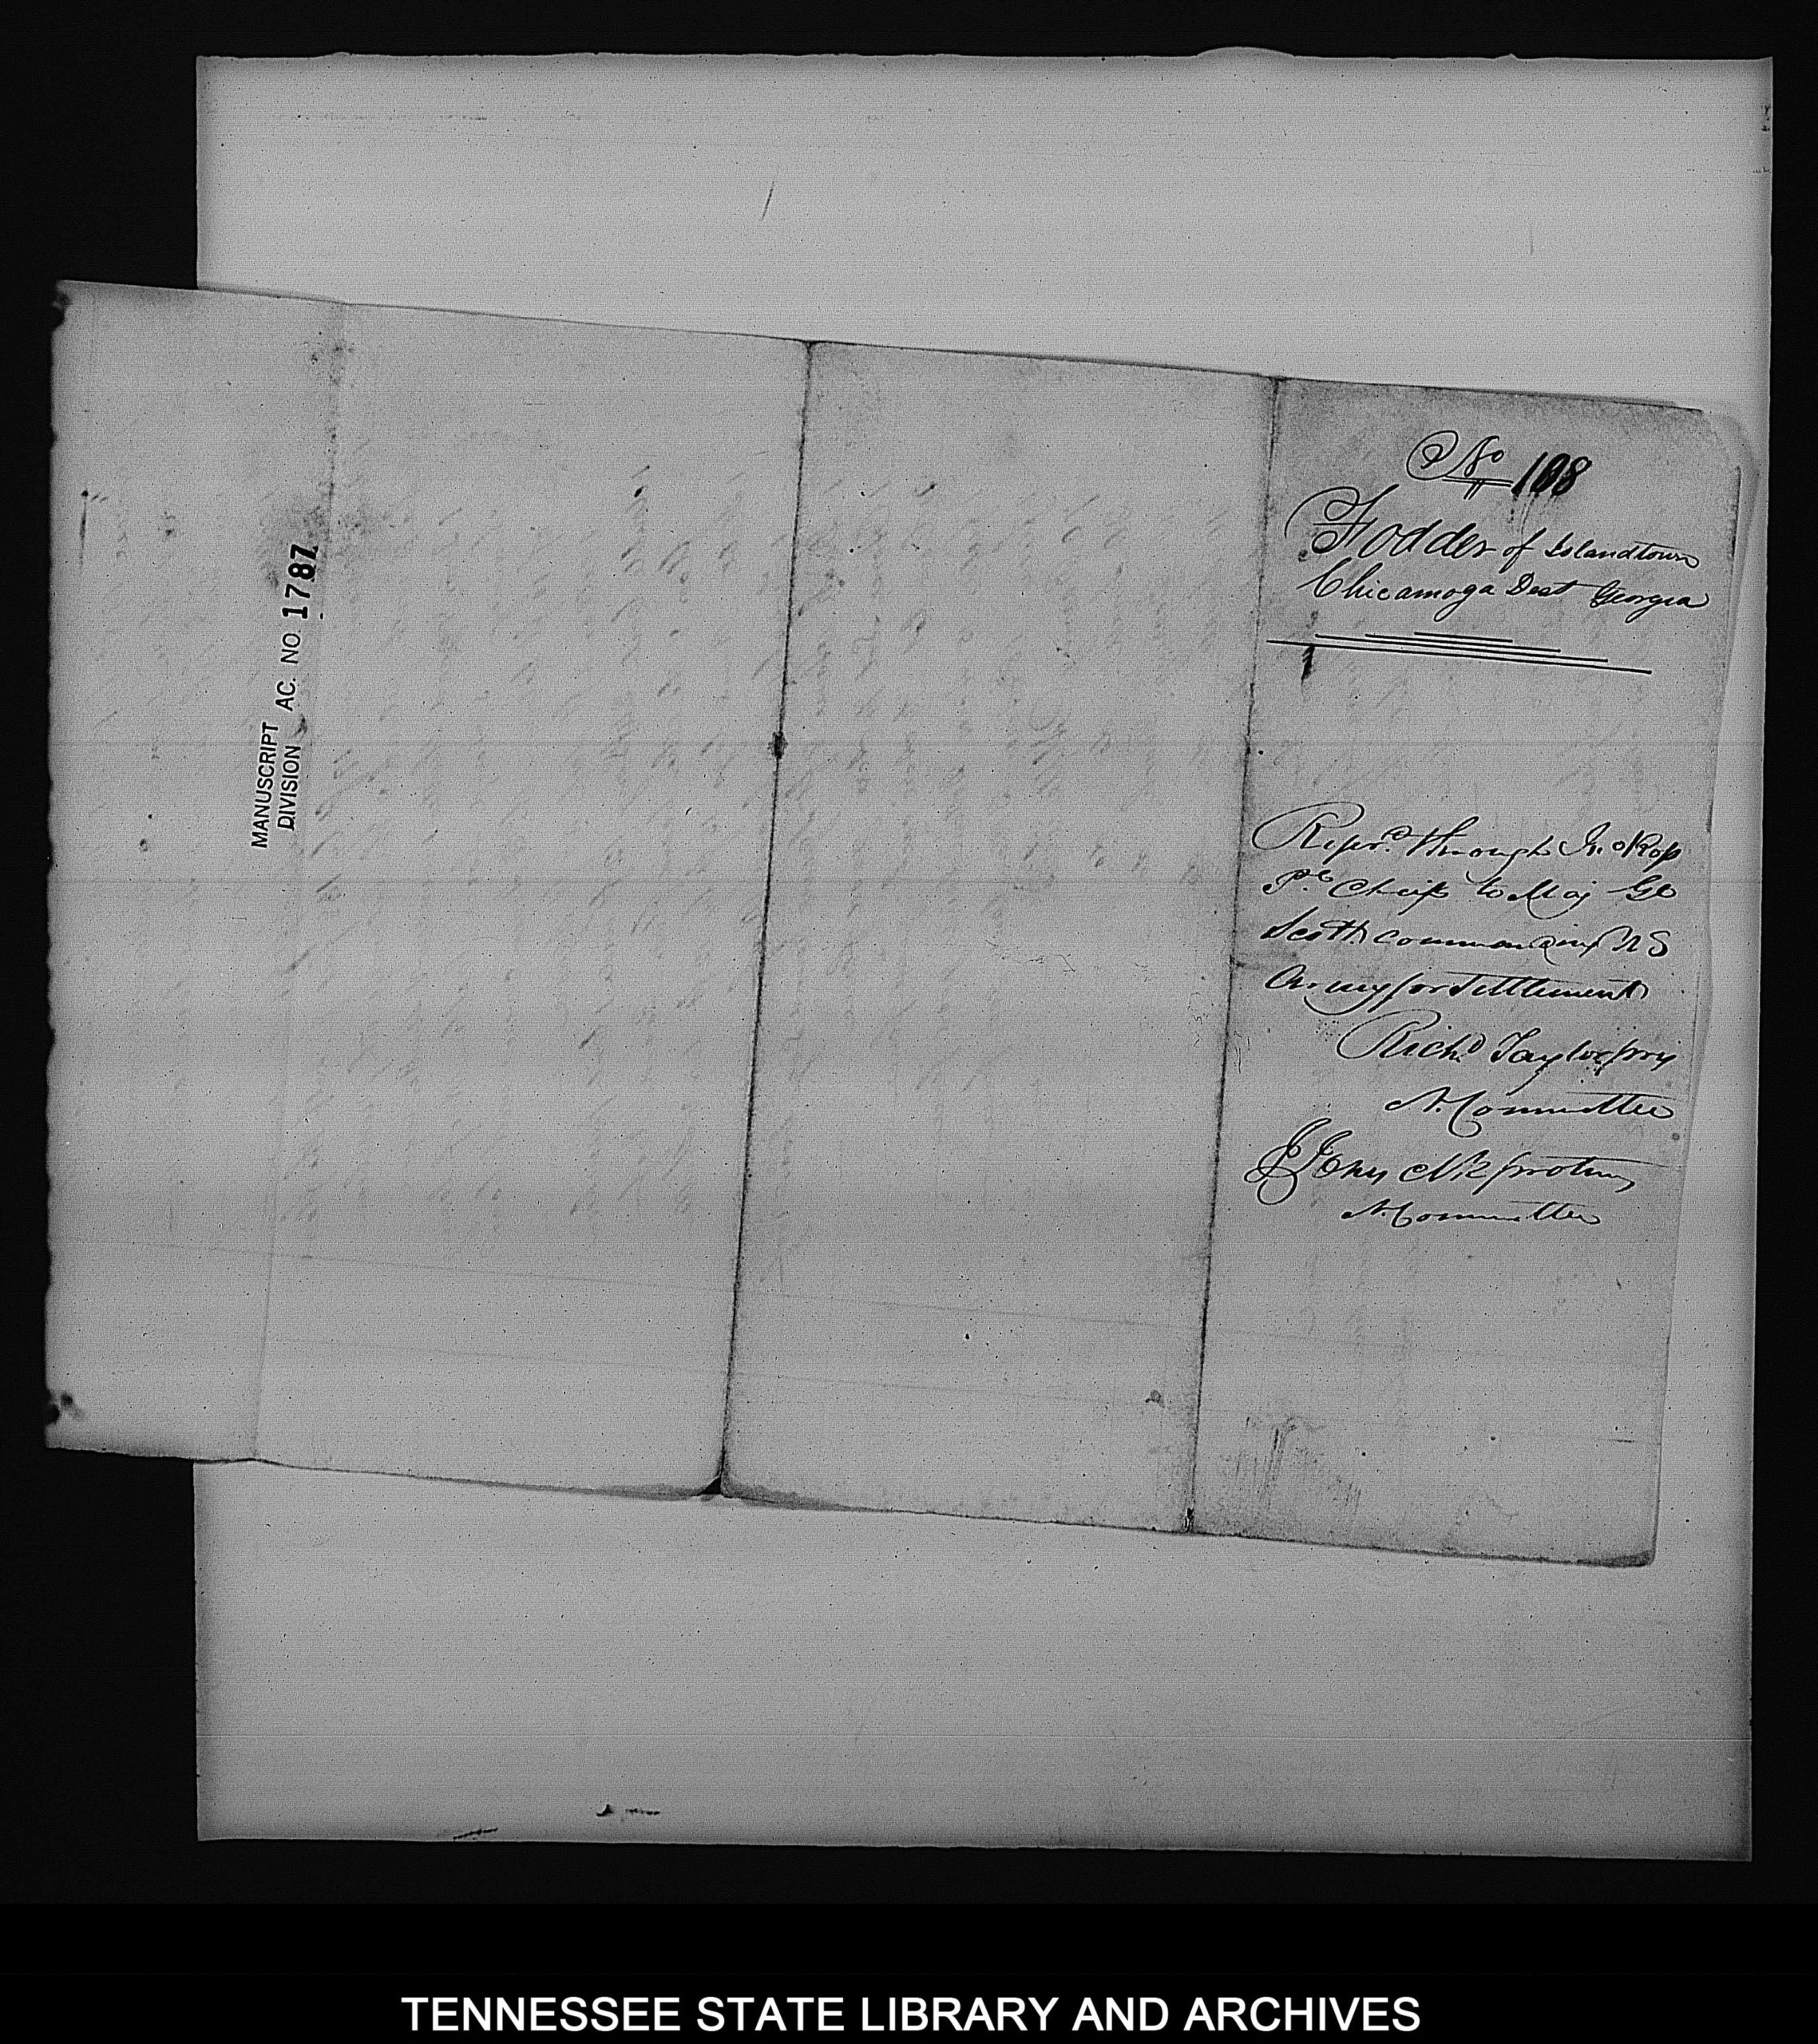 MANUSCRIPT
DIVISION AC. NO. 1787
No 108
Fodder of Islandtown
Chicamoga Dest Georgia
1
through Jno Ross
Pl Chief to Maj Ge
Scott commanding US
Army for Settlement
Richd Taylor
N. Committee
protem
N. Committee
TENNESSEE STATE LIBRARY AND ARCHIVES